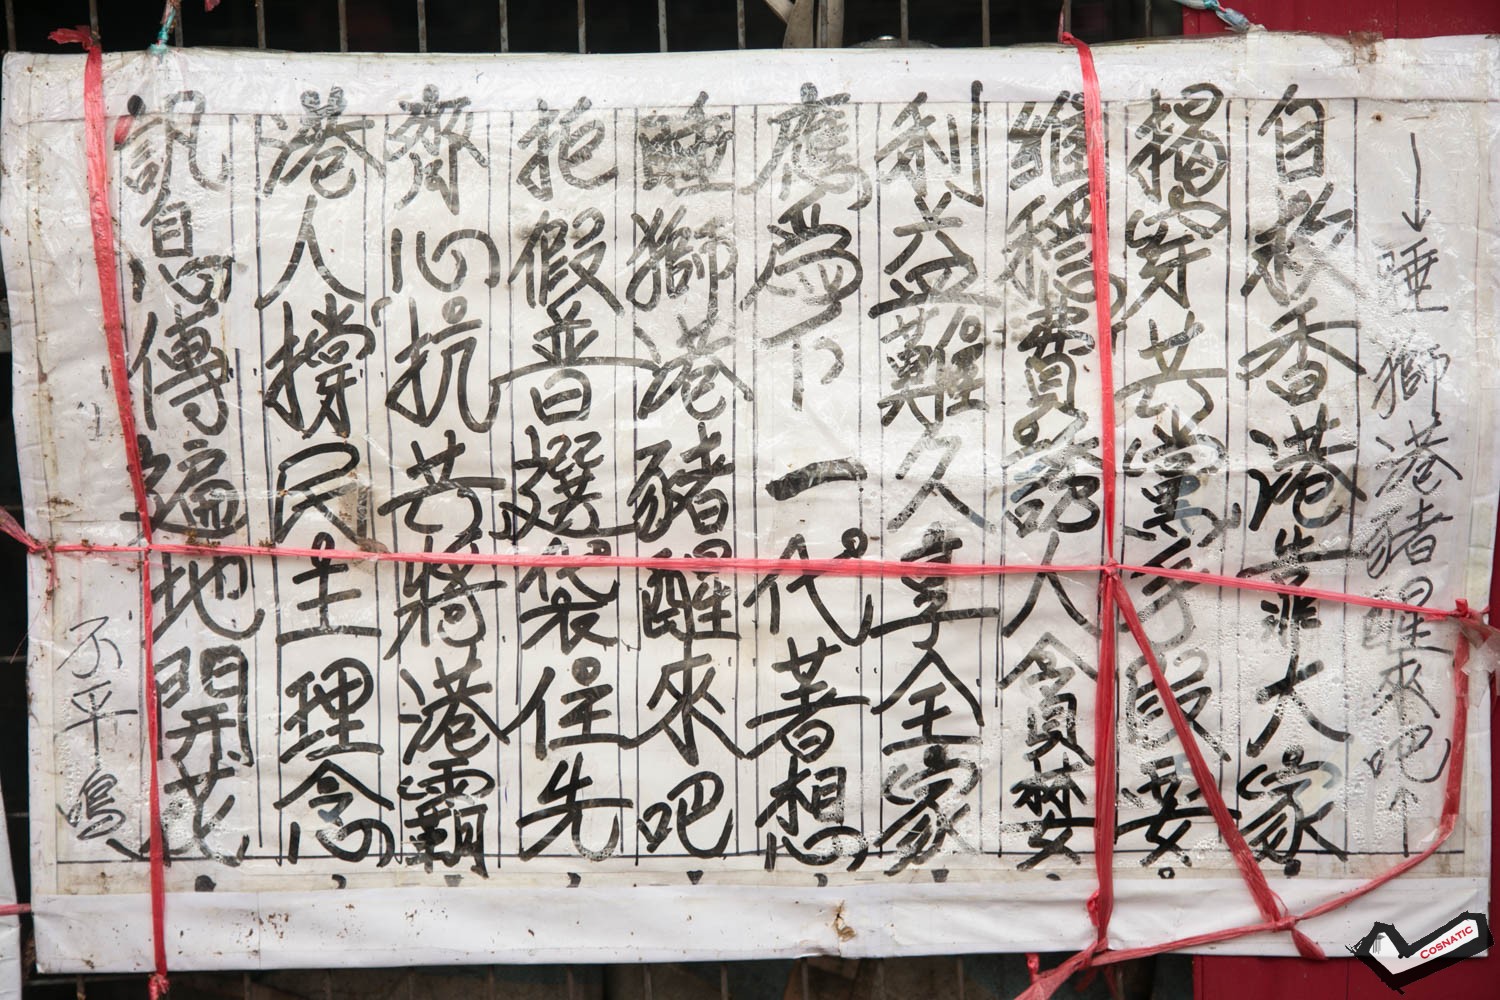 ↓睡獅港豬醒來吧↑
自救香港靠大家
揭穿共黨手段要
維穩費誘人貪婪
利益難久享全家
應為下一代著想
睡獅港豬醒來吧
拒假普選袋住先
齊心抗共將港霸
港人撐民主理念
訊息傳遍地開花
不平鳴
COSNATIC